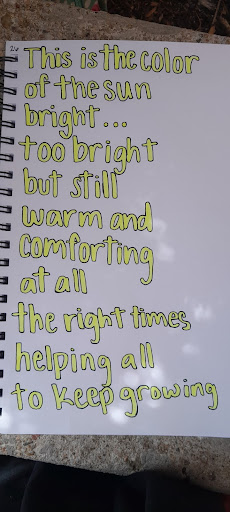 This is the color
of the sun
bright...
too bright
but still
warm and
comforting
at all
the right times
helping all
to keep growing